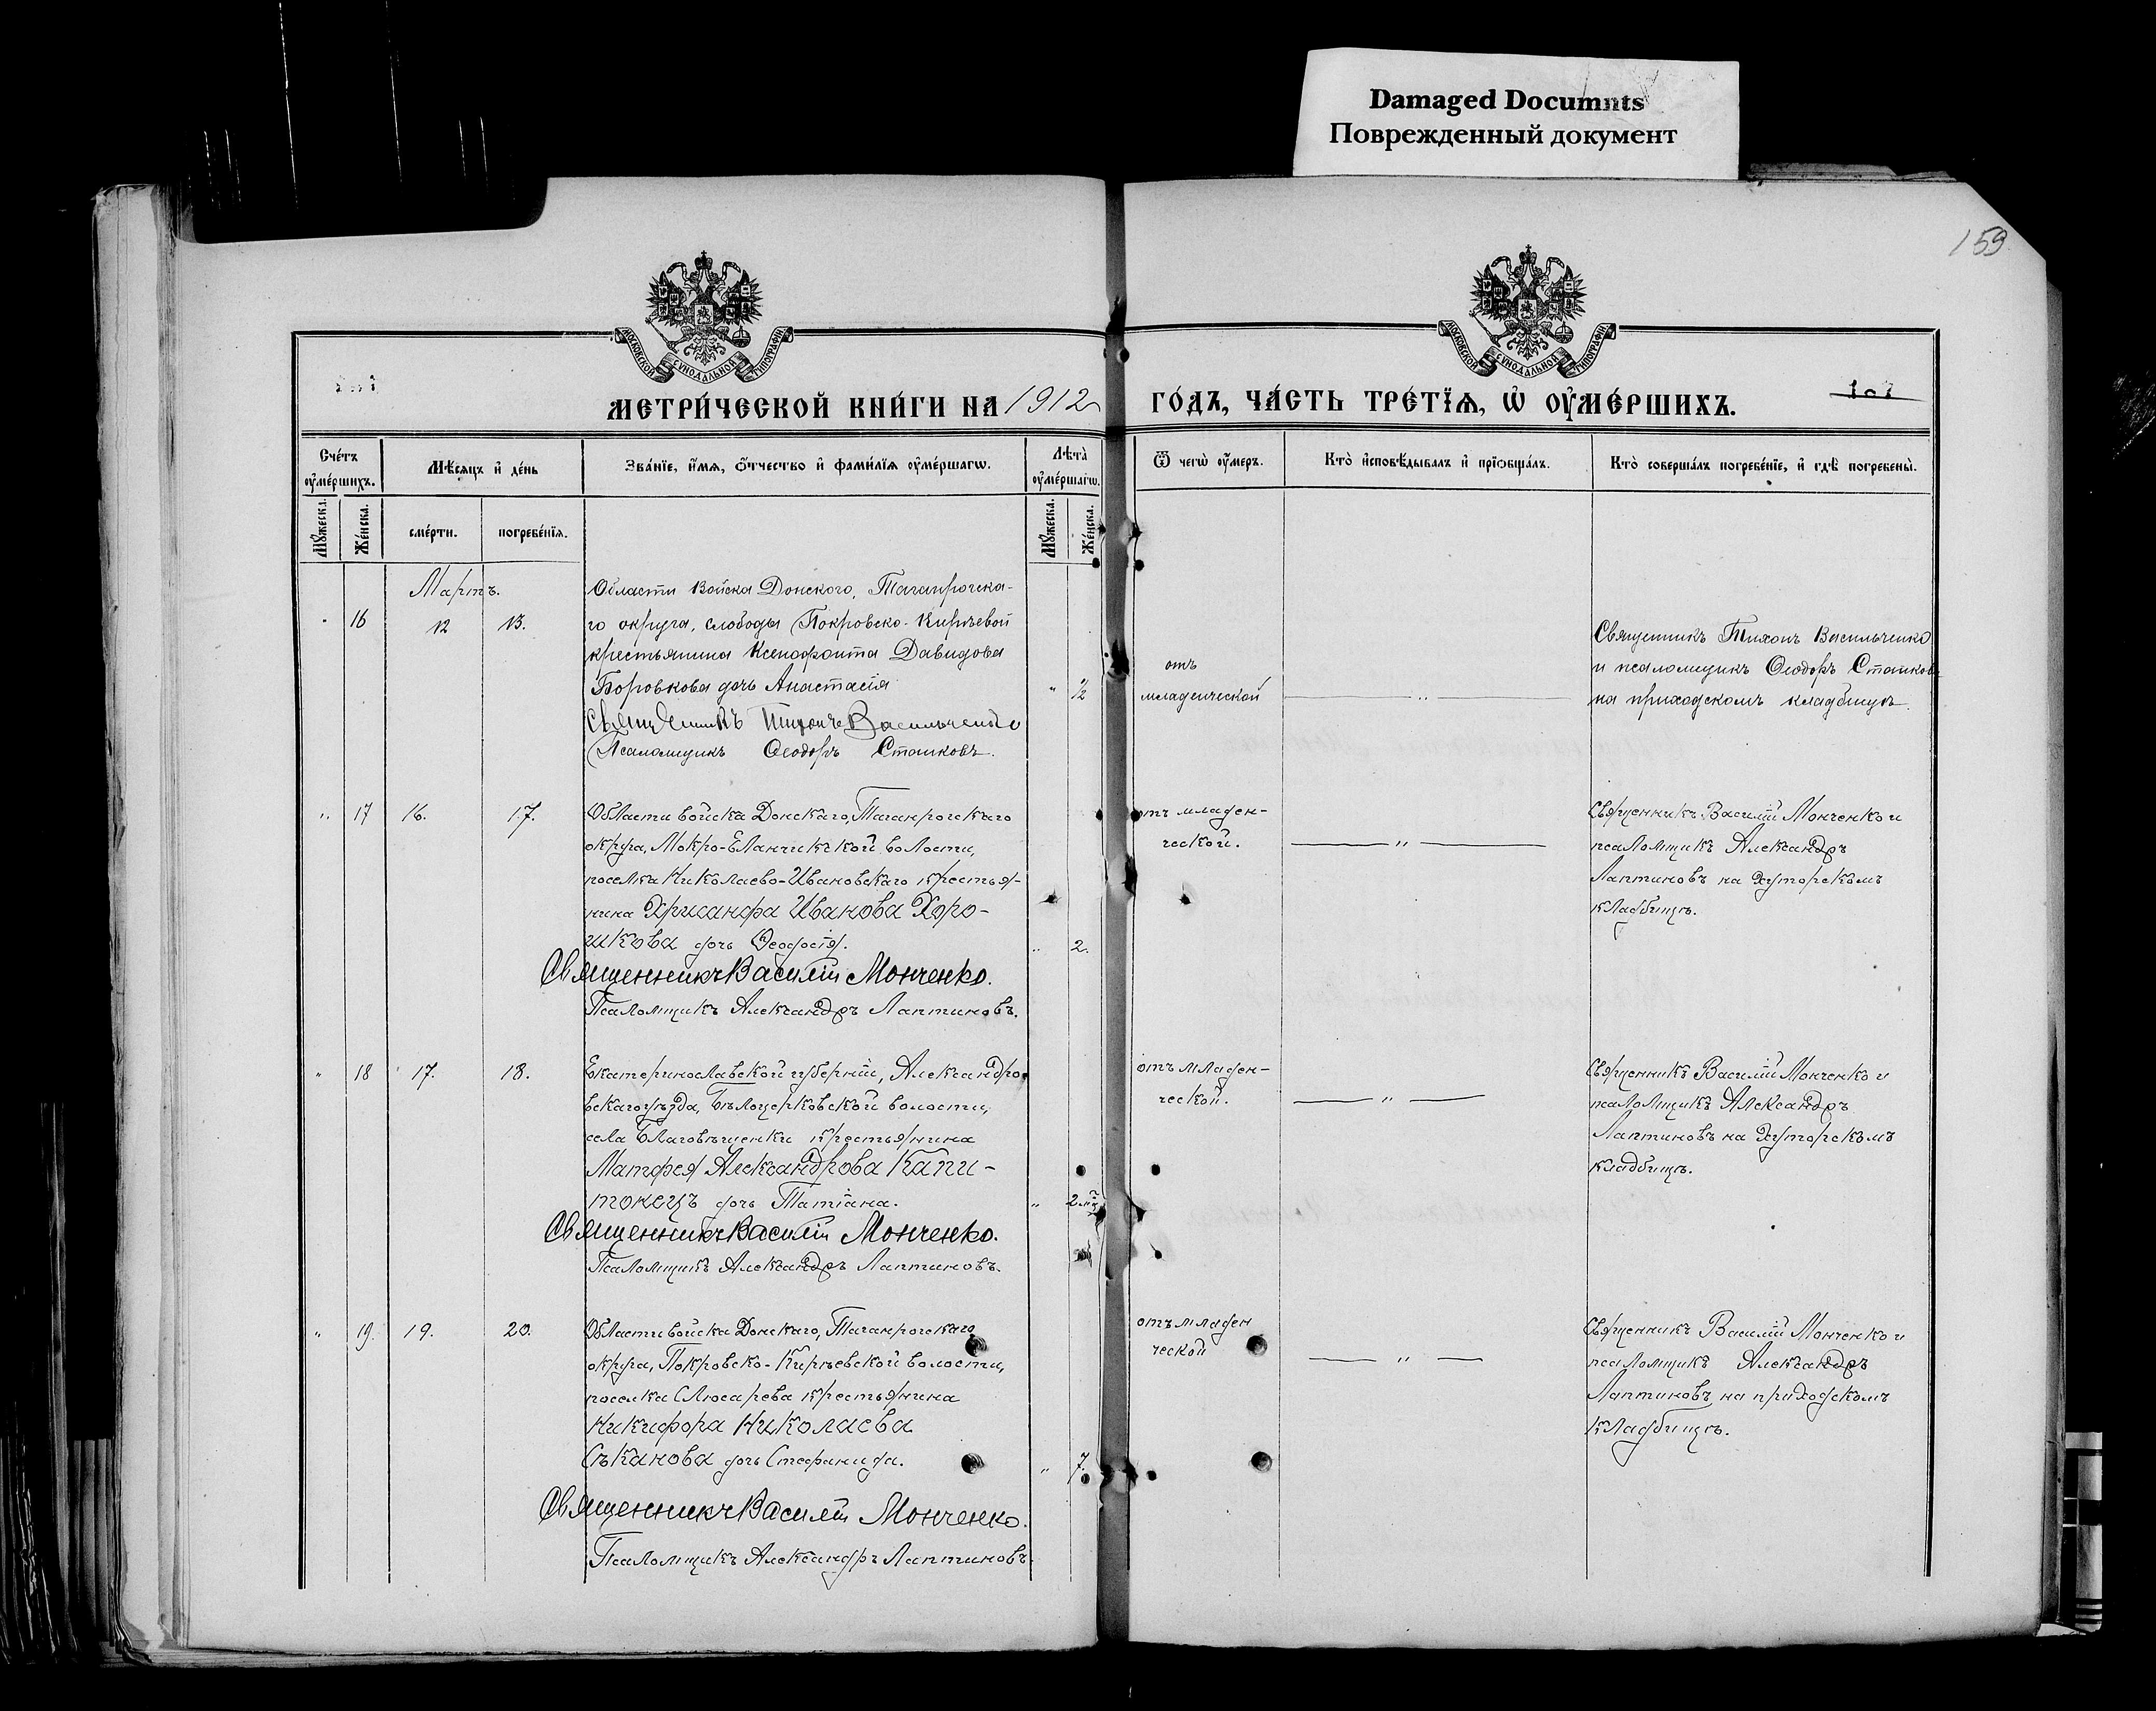 Damaged Documnts
Поврежденный документ
159
МОСКОВСКОЙ СУНОДАЛЬНОЙ ТИПОГРАФІИ
МОСКОВСКОЙ СУНОДАЛЬНОЙ ТИПОГРАФІИ
МЕТРИ́ЧЕСКОЙ КНИ́ГИ НА 1912
ГО́ДЪ, ЧА́СТЬ ТРЕ́ТЇѦ, Ѡ҆ ОУ҆МЕ́РШИХЪ.
Сче́тъ оу҆ме́ршихъ.
Мѣ́сяцъ и҆ де́нь
Зва́нїе, и҆́мя, ѻ҆́тчество и҆ фами́лїя оу҆ме́ршагѡ.
Лѣта̀ оу҆ме́ршагѡ.
Ѿ чегѡ̀ оу҆́меръ.
Кто̀ и҆сповѣ́дывалъ и҆ прїѡбща́лъ.
Кто̀ соверша́лъ погребе́нїе, и҆ гдѣ̀ погребены̀.
Мꙋ́жеска.
Же́нска.
сме́рти.
погребе́нїя.
Мꙋ́жеска.
Же́нска.
Мартъ.
16
12
13.
Области Войска Донского, Таганрогска-
го округа, слободы Покровско-Кирѣевой
крестьянина Ксенофонта Давидова
Боровкова дочь Анастасія
" ½
Священникъ Тихонъ Васильченко
Псаломщикъ Ѳеодоръ Сташковъ.
отъ
младенческой
"
Священникъ Тихонъ Васильченко
и псаломщикъ Ѳеодоръ Сташковъ
на приходскомъ кладбищѣ.
" 17
16.
17.
Области войска Донскаго, Таганрогскаго
округа, Мокро-Еланчикской волости,
поселка Николаево-Ивановскаго крестья-
нина Хрисанфа Иванова Хоро-
шкова дочь Ѳеодосія.
" 2.
Священникъ Василій Монченко.
Псаломщикъ Александръ Лаптиновъ.
отъ младен-
ческой.
"
Священникъ Василій Монченко и
псаломщикъ Александръ
Лаптиновъ на хуторскомъ
кладбищѣ.
" 18
17.
18.
Екатеринославской губерніи, Александро-
вскаго уѣзда, Бѣлоцерковской волости,
села Благовѣщенки крестьянина
Матфея Александрова Капи-
тонецъ дочь Татіана.
"
Священникъ Василій Монченко.
Псаломщикъ Александръ Лаптиновъ.
отъ младен-
ческой.
"
Священникъ Василій Монченко и
псаломщикъ Александръ
Лаптиновъ на хуторскомъ
кладбищѣ.
" 19.
19.
20.
Области войска Донскаго, Таганрогскаго
округа, Покровско-Кирѣевской волости,
поселка Слюсарева крестьянина
Никифора Николаева
Сѣканова дочь Стефанида.
" 7.
Священникъ Василій Монченко.
Псаломщикъ Александръ Лаптиновъ.
отъ младен
ческой
"
Священникъ Василій Монченко и
псаломщикъ Александръ
Лаптиновъ на приходскомъ
кладбищѣ.